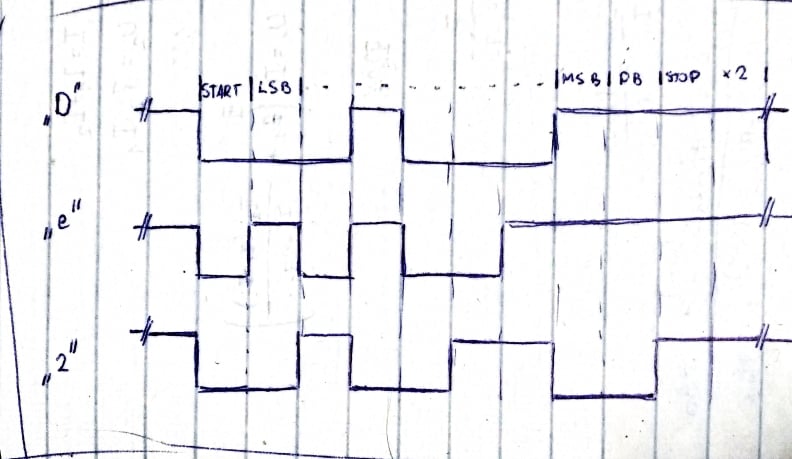 START | LSB | - - - - - - - - - | MSB | PB | STOP ×2 |
„D"
„e"
„2"